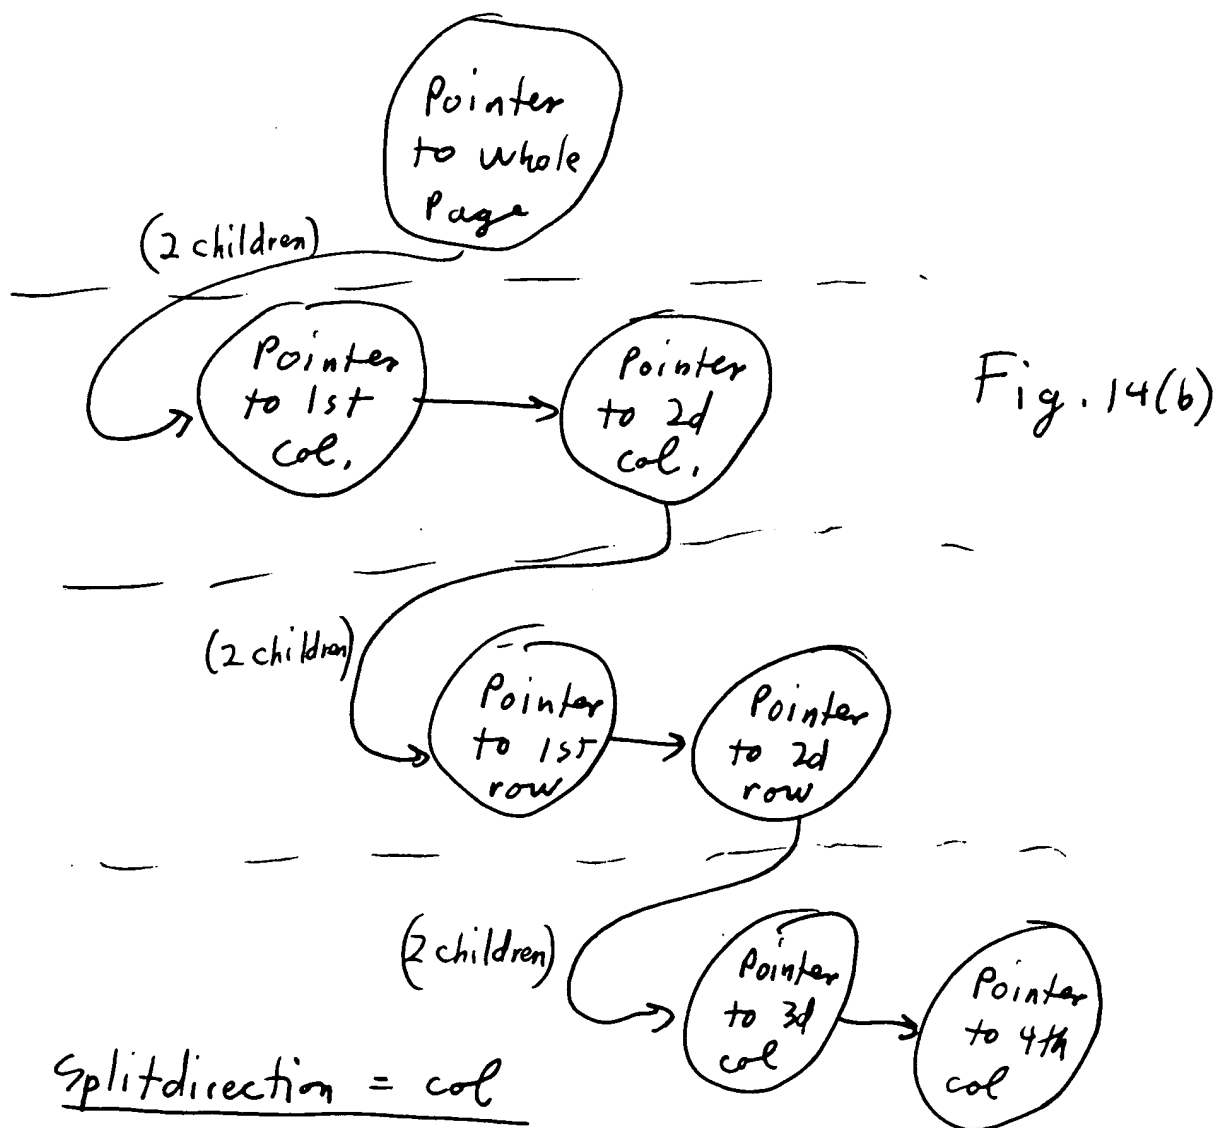 Pointer
to whole
Page
(2 children)
Pointer
to 1st
col.
Pointer
to 2d
col.
Fig. 14(b)
(2 children)
Pointer
to 1st
row
Pointer
to 2d
row
(2 children)
Pointer
to 3d
col
Pointer
to 4th
col
Splitdirection = col